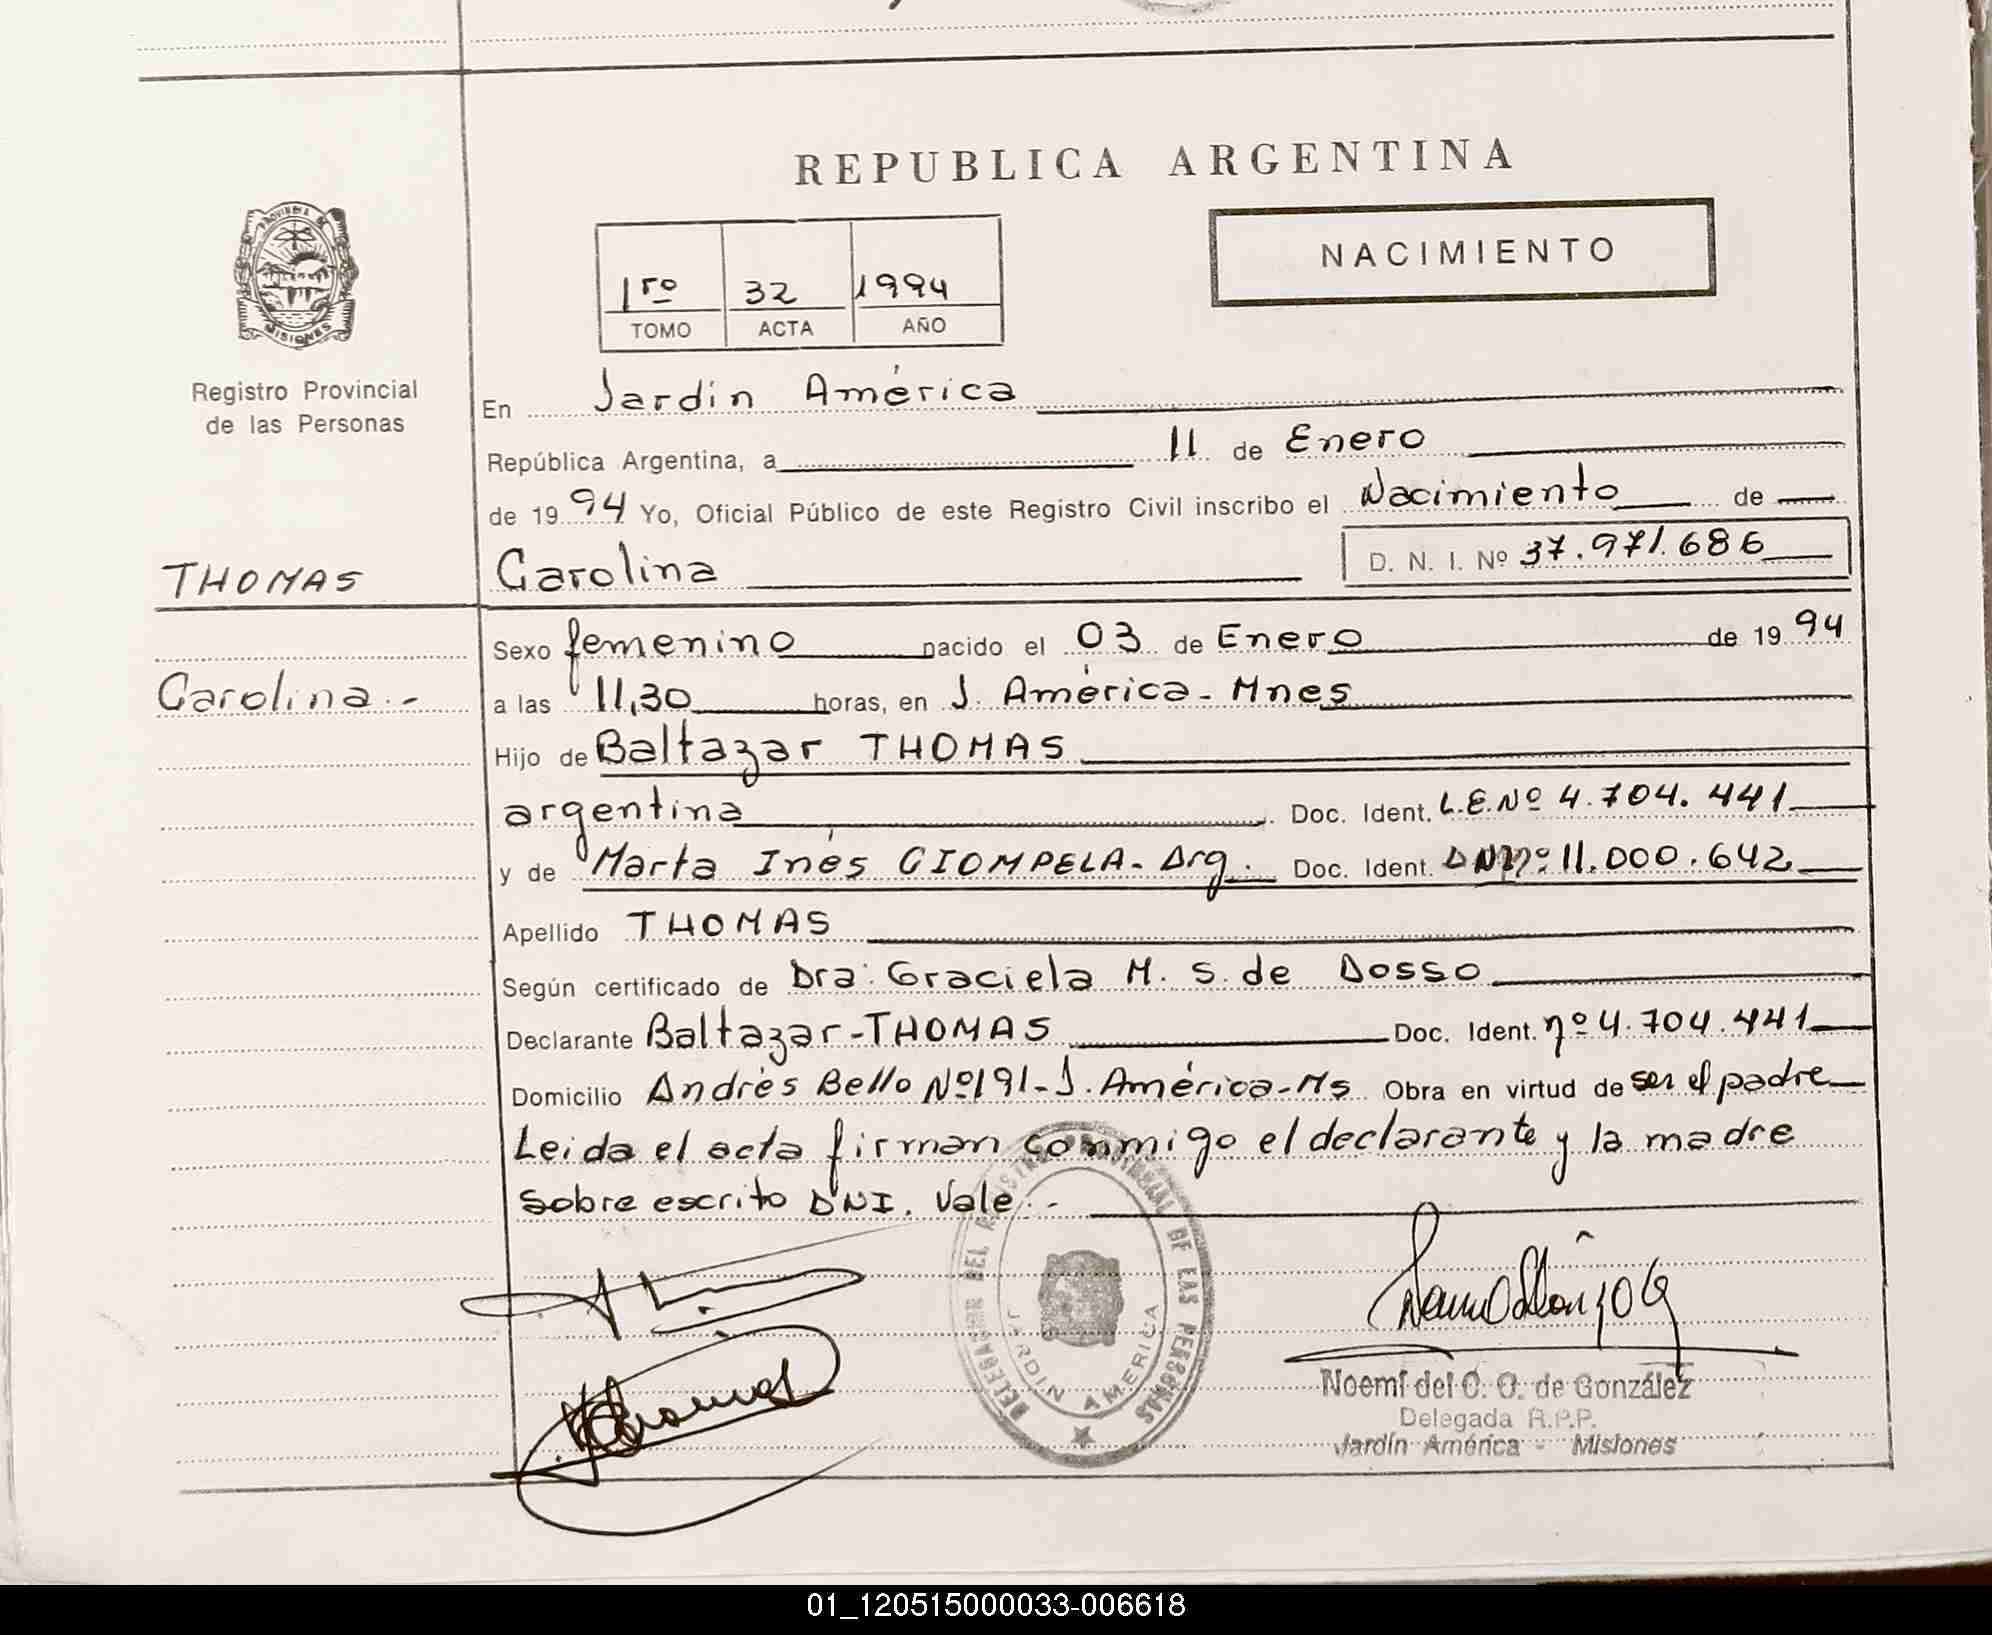 REPUBLICA ARGENTINA
PROVINCIA DE MISIONES
Registro Provincial
de las Personas
1ro 32 1994
TOMO ACTA AÑO
NACIMIENTO
En Jardín América
República Argentina, a 11 de Enero
de 1994 Yo, Oficial Público de este Registro Civil inscribo el Nacimiento de
THOMAS
Carolina D. N. I. Nº 37.971.686
Sexo femenino nacido el 03 de Enero de 1994
Carolina.-
a las 11,30 horas, en J. América - Mnes
Hijo de Baltazar THOMAS
argentina Doc. Ident. L.E.Nº 4.704.441
y de Marta Inés CIOMPELA - Arg. Doc. Ident. DNI Nº 11.000.642
Apellido THOMAS
Según certificado de Dra: Graciela M. S. de Dosso
Declarante Baltazar - THOMAS Doc. Ident. nº 4.704.441
Domicilio Andrés Bello Nº 191 - J. América - Ms Obra en virtud de ser el padre
Leida el acta firman conmigo el declarante y la madre
sobre escrito DNI. Vale.-
DELEGACION DEL REGISTRO PROVINCIAL DE LAS PERSONAS
JARDIN AMERICA
Noemí del C. O. de González
Delegada R.P.P.
Jardín América - Misiones
01_120515000033-006618